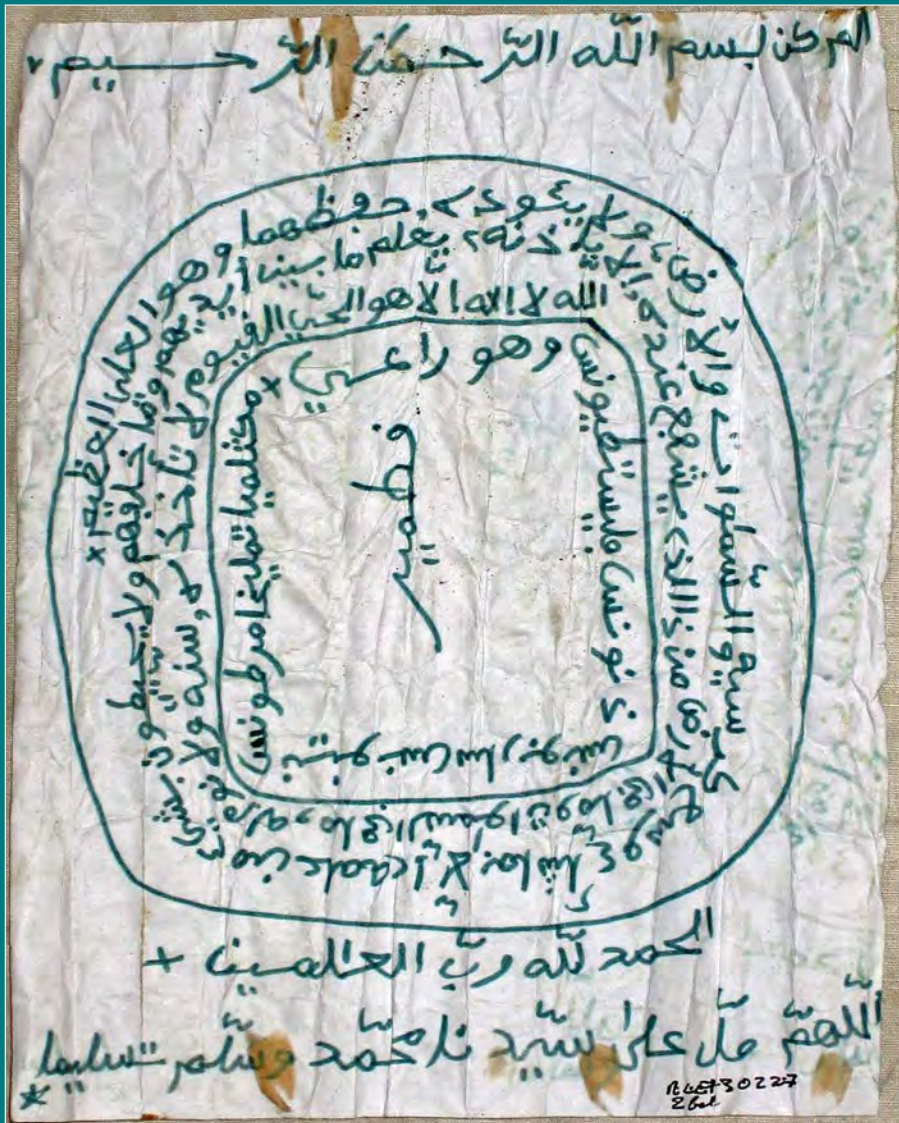 لبسم اللّه الرّحمن الرّحيم
اللّه لا اله الا هو الحيّ القيّوم لا تأخذه سنه ولا نوم له ما في السموات وما في الارض من ذا الذي يشفع عنده الا باذنه يعلم ما بين أيديهم وما خلفهم ولا يحيطون بشيء من علمه الّا بما شاء وسع كرسيه السّموات والأرض ولا يئوده حفظهما وهو العلي العظيم ×
تمليخا مرطونس
وهو راعي +
قطمير
الحمد للّه ربّ العالمين +
اللّهمّ صلّ على سيّدنا محمّد وسلّم تسليما *